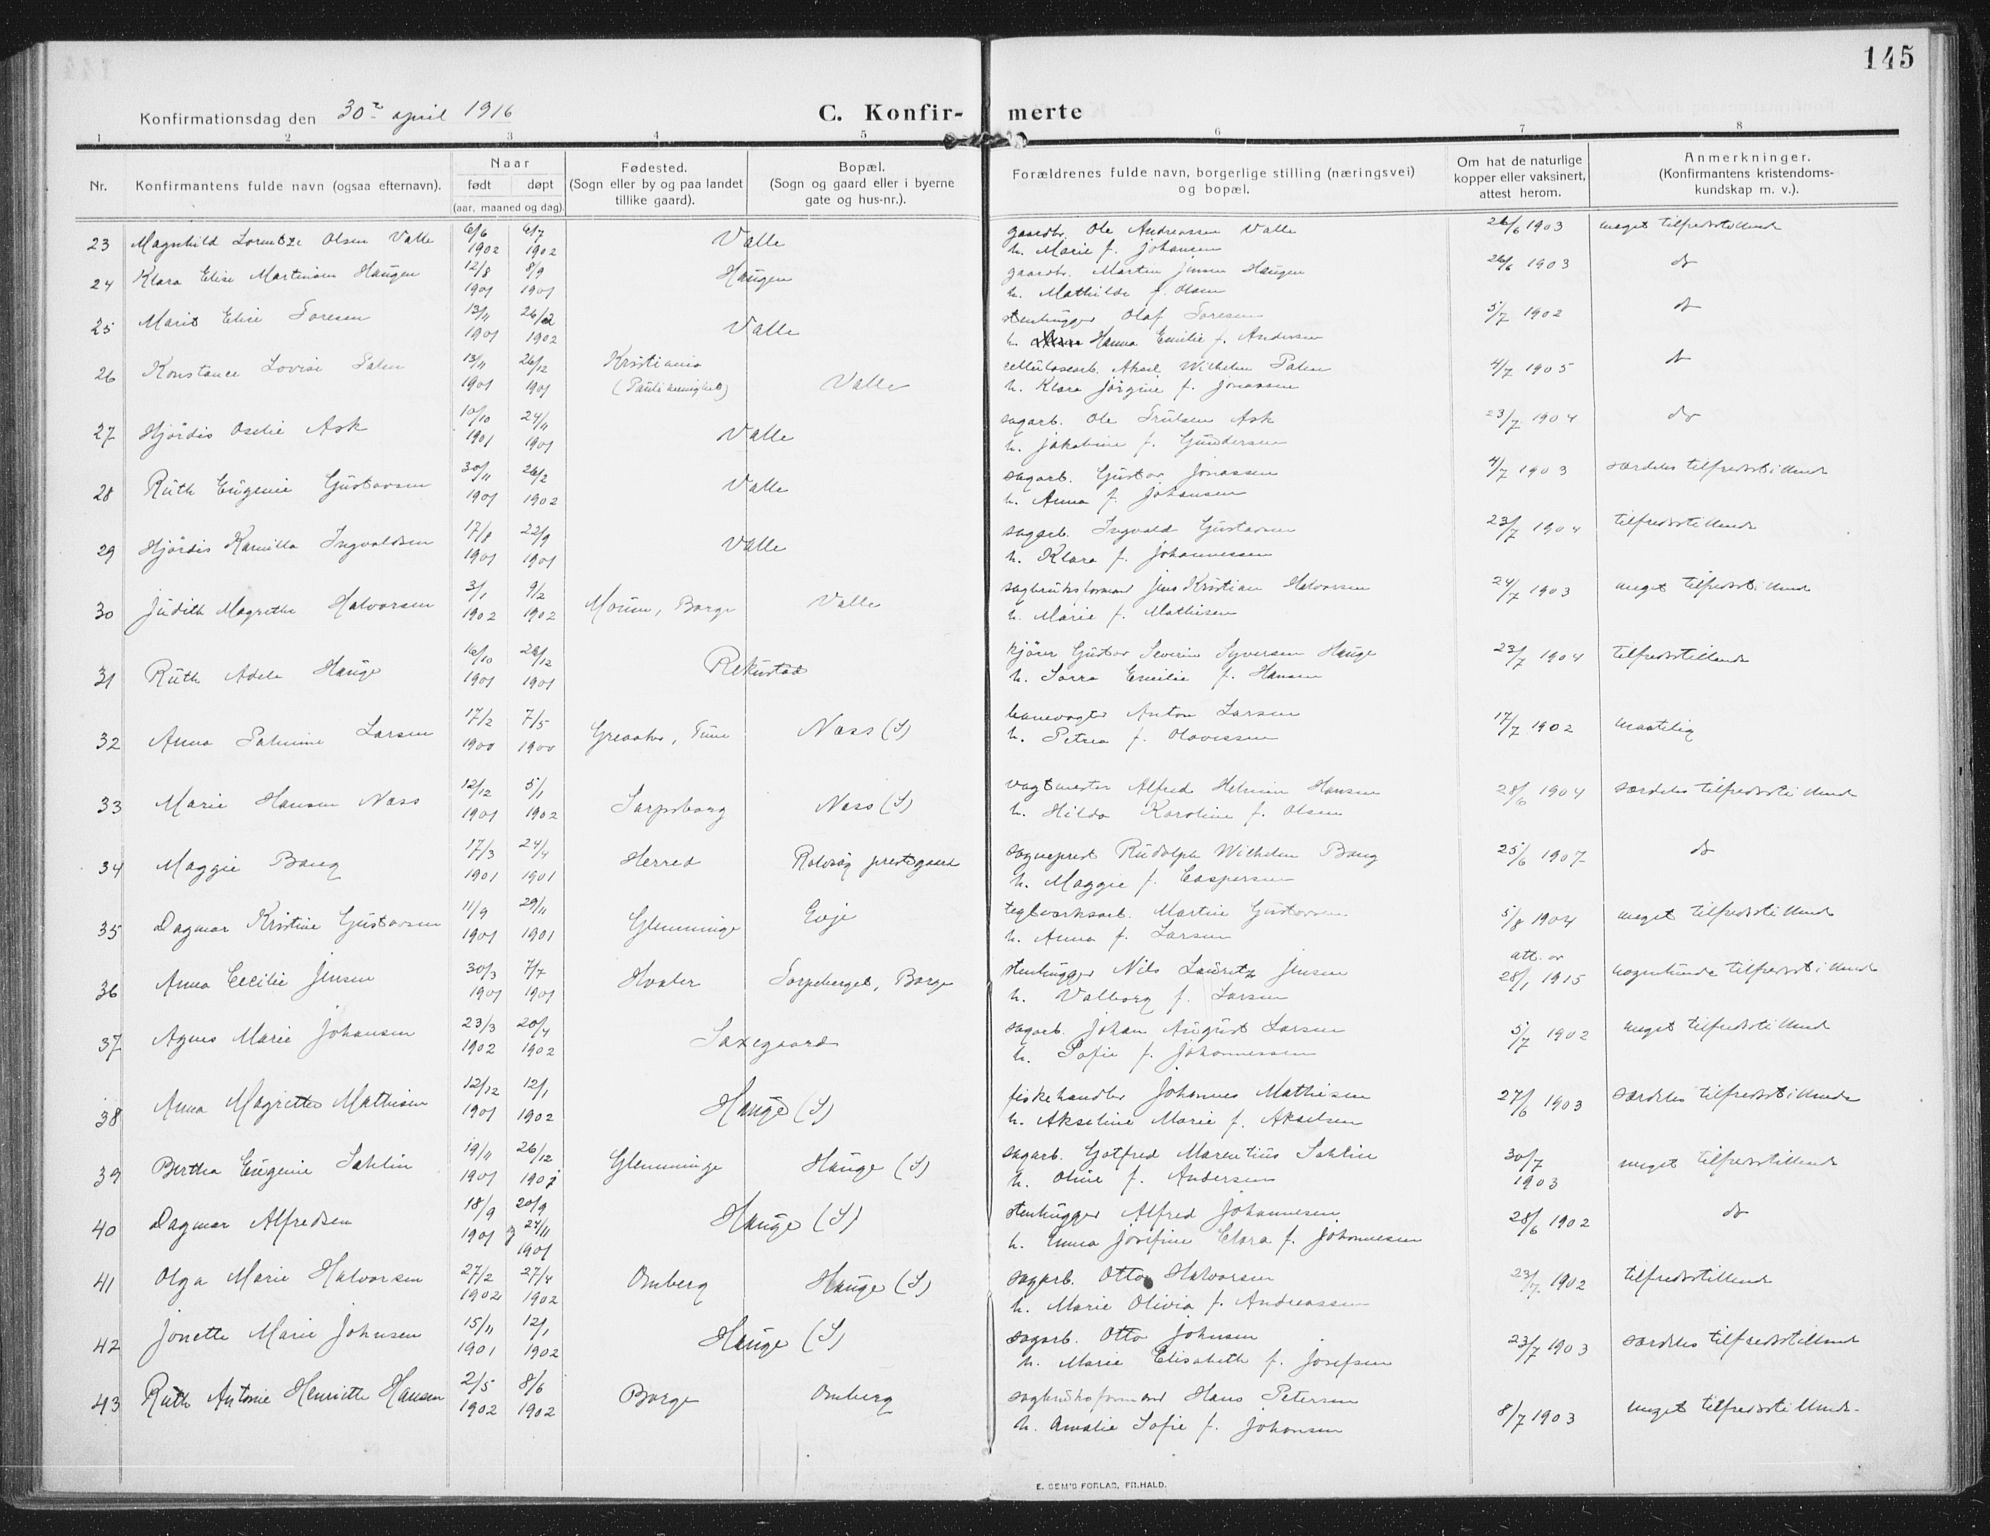 145
Konfirmationsdag den 30te april 1916
C. Konfir- merte
1 2 3 4 5 6 7 8
Nr.
Konfirmantens fulde navn (ogsaa efternavn).
Naar
født døpt
(aar, maaned og dag).
Fødested.
(Sogn eller by og paa landet
tillike gaard).
Bopæl.
(Sogn og gaard eller i byerne
gate og hus-nr.).
Forældrenes fulde navn, borgerlige stilling (næringsvei)
og bopæl.
Om hat de naturlige
kopper eller vaksinert,
attest herom.
Anmerkninger.
(Konfirmantens kristendoms-
kundskap m. v.).
23 Magnhild Lorentze Olsen Valle 6/6 1902 6/7 1902 Valle gaardbr. Ole Andreassen Valle 26/6 1903 meget tilfredsstillende
h. Marie f. Johansen
24 Klara Elise Martinsen Haugen 12/8 1901 8/9 1901 Haugen gaardbr. Martin Jensen Haugen 26/6 1903 do
h. Mathilde f. Olsen
25 Marit Elise Toresen 13/11 1901 26/2 1902 Valle stenhugger Olaf Toresen 5/7 1902 do
h. Hanna Emilie f. Andersen
26 Konstance Lovise Palm 13/11 1901 26/12 1901 Kristiania Valle cellulosearb. Aksel Wilhelm Palm 4/7 1905 do
h. Klara Jørgine f. Jonassen
27 Hjördis Oselie Ask 10/10 1901 24/11 1901 Valle sagarb. Ole Trulsen Ask 23/7 1904 do
h. Jakobine f. Gundersen
28 Ruth Eugenie Gustavsen 30/11 1901 26/2 1902 Valle sagarb. Gustav Jonassen 4/7 1903 særdeles tilfredsstillende
h. Anna f. Johansen
29 Hjördis Kamilla Ingvaldsen 17/8 1901 22/9 1901 Valle sagarb. Ingvald Gustavsen 23/7 1904 tilfredsstillende
h. Klara f. Johannessen
30 Judith Magrethe Halvorsen 3/1 1902 9/2 1902 Moum, Borge Valle sagbruksformand Jens Kristian Halvorsen 24/7 1903 meget tilfredsstillende
h. Marie f. Mathisen
31 Ruth Adele Hauge 16/10 1901 26/12 1901 Rekustad kjører Gustav Severin Syversen Hauge 23/7 1904 tilfredsstillende
h. Sorra Emilie f. Hansen
32 Anna Palmine Larsen 17/2 1900 7/5 1900 Greaaker, Tune Næss (S) banevogter Anton Larsen 17/7 1902 maatelig
h. Petrea f. Olavessen
33 Marie Hansen Næss 12/12 1901 5/1 1902 Sarpsborg Næss (S) vagtmester Alfred Helmin Hansen 28/6 1904 særdeles tilfredsstillende
h. Hilda Karoline f. Olsen
34 Maggie Bang 17/3 1901 24/4 1901 Herred Rolvsøy prestegaard sogneprest Rudolph Wilhelm Bang 25/6 1907 do
h. Maggie f. Caspersen
35 Dagmar Kristine Gustavsen 11/9 1901 29/11 1901 Glemminge Evje teglverksarb. Martin Gustavsen 5/8 1904 meget tilfredsstillende
h. Anna f. Larsen
36 Anna Cecilie Jensen 30/3 1901 7/7 1901 Hvaler Torpeberget, Borge stenhugger Nils Lauretz Jensen att. av 28/1 1915 nogenlunde tilfredsstillende
h. Valborg f. Larsen
37 Agnes Marie Johansen 23/3 1902 20/4 1902 Saxegaard sagarb. Johan August Larsen 5/7 1902 meget tilfredsstillende
h. Sofie f. Johannessen
38 Anna Magrethe Mathisen 12/12 1901 12/1 1902 Hauge (S) fiskehandler Johannes Mathisen 27/6 1903 særdeles tilfredsstillende
h. Akseline Marie f. Akselsen
39 Bertha Eugenie Sahlin 19/11 1901 26/12 1901 Glemminge Hauge (S) sagarb. Gotfred Marentius Sahlin 30/7 1903 meget tilfredsstillende
h. Oline f. Andersen
40 Dagmar Alfredsen 18/9 1901 20/9 g 24/11 1901 Hauge (S) stenhugger Alfred Johannesen 28/6 1902 do
h. Emma Josefine Clara f. Johannesen
41 Olga Marie Halvorsen 27/2 1902 27/4 1902 Omberg Hauge (S) sagarb. Otto Halvorsen 23/7 1902 tilfredsstillende
h. Marie Olivia f. Andreassen
42 Jonette Marie Johnsen 15/11 1901 12/1 1902 Hauge (S) sagarb. Otto Johnsen 23/7 1903 særdeles tilfredsstillende
h. Marie Elisabeth f. Josefsen
43 Ruth Antonie Henriette Hansen 2/5 1902 8/6 1902 Borge Omberg sagbruksformand Hans Petersen 8/7 1903 meget tilfredsstillende
h. Amalie Sofie f. Johansen
E. SEM'S FORLAG, FR.HALD.